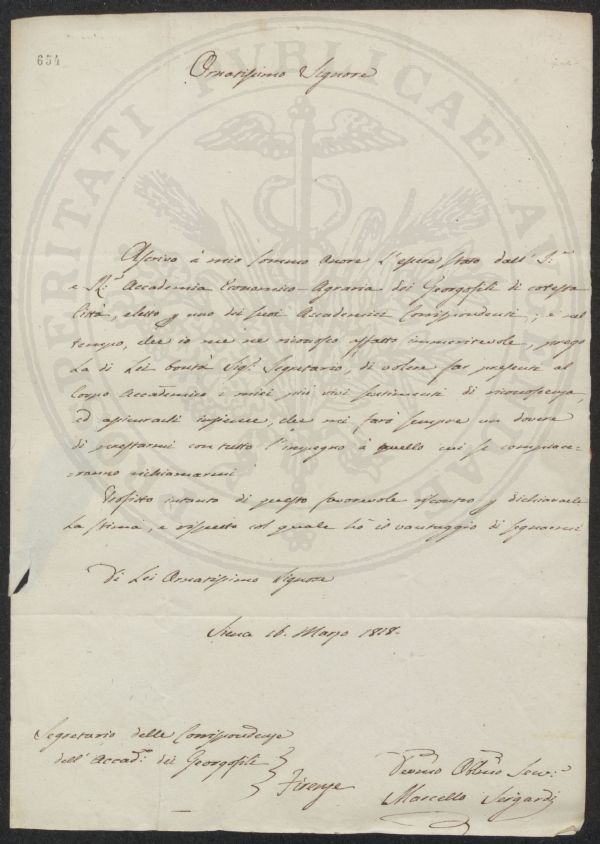 654
Ornatissimo Signore
PROSPERITATI PUBLICAE AUGENDAE
Ascrivo à mio sommo onore l'essere stato dall' I.
e R. Accademia Economico-Agraria dei Georgofili di cotesta
Città, eletto p uno dei suoi Accademici Corrispondenti; e nel
tempo, che io me ne riconosco affatto immeritevole, prego
La di Lei bontà Sig. Segretario, di volere far presenti al
Corpo Accademico i miei più vivi sentimenti di riconoscenza,
ed assicurarli insieme, che mi farò sempre un dovere
di prestarmi con tutto l'impegno à quello cui si compiace-
-ranno richiamarmi
Profitto intanto di questo favorevole riscontro p dichiararle
La stima, e rispetto col quale hò il vantaggio di segnarmi
Di Lei Ornatissimo Signore
Siena 16. Marzo 1818.
Segretario delle Corrispondenze
dell' Accad. dei Georgofili
Firenze
Devmo Obbmo Serv.
Marcello Sergardi